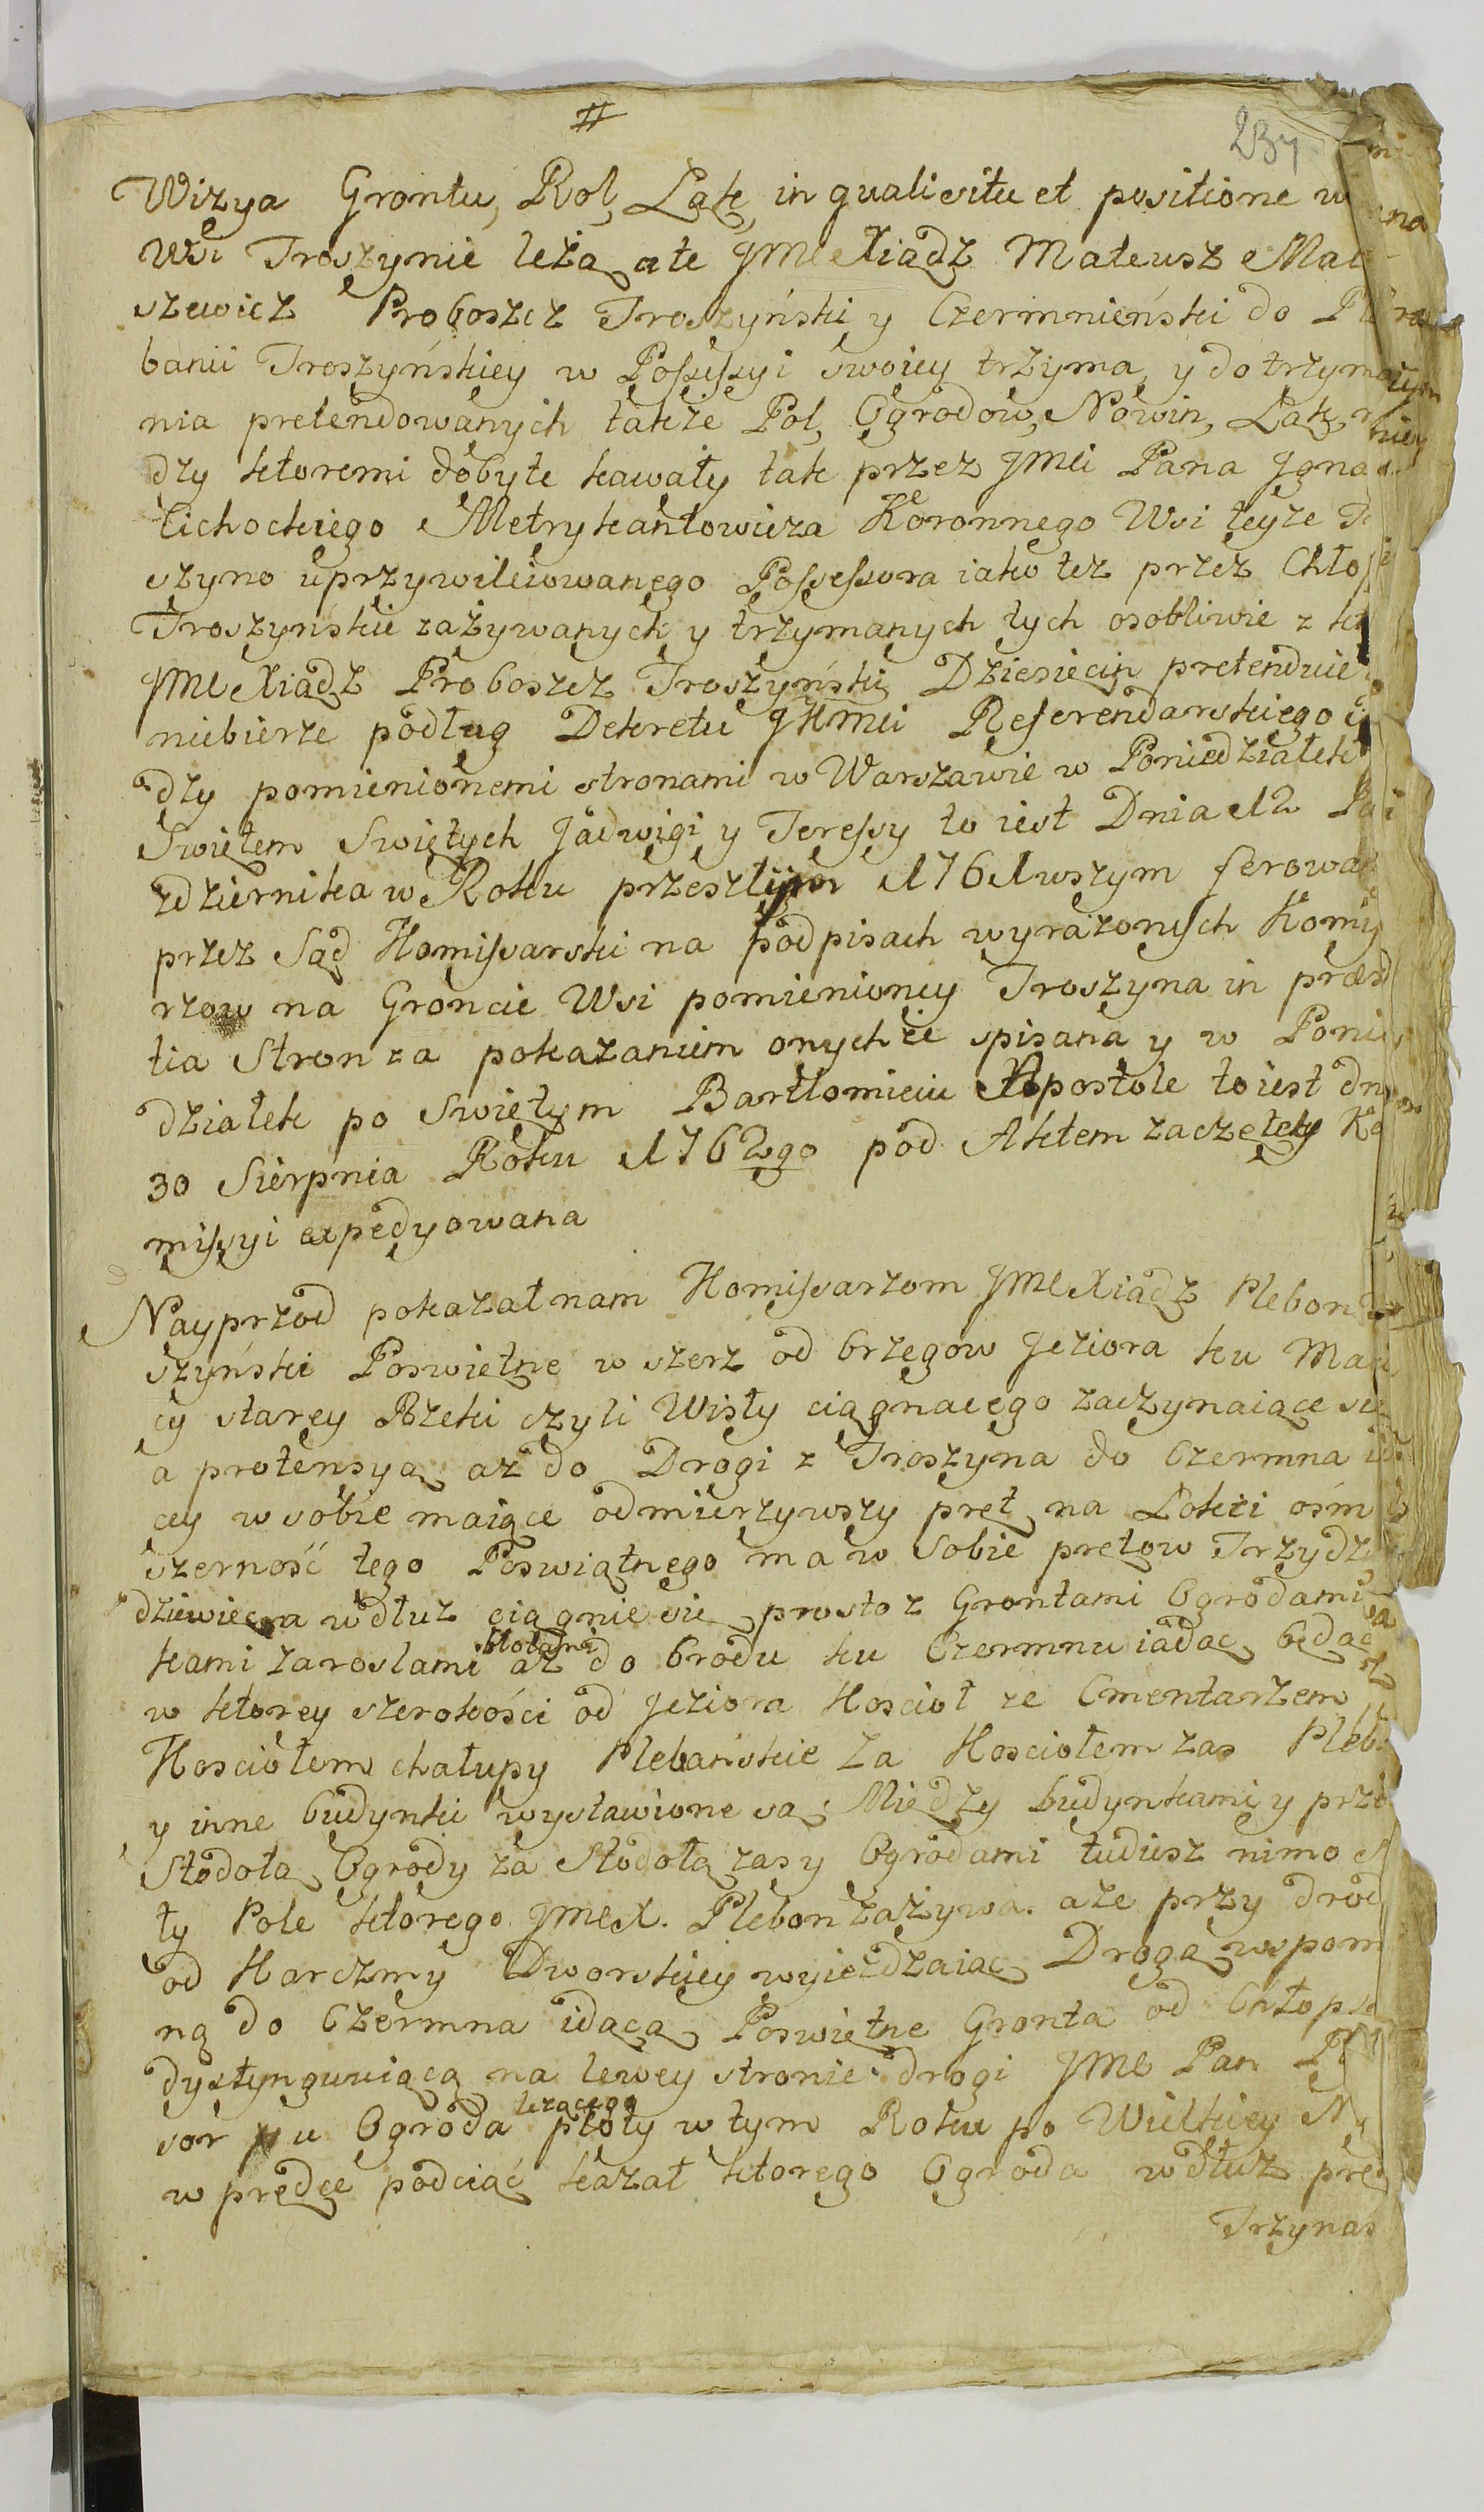 #
237
Wizya Grontu, Rol, Łąk, in quali situ et positione w
Wsi Troszynie leżą, a te JMC Xiądz Mateusz Mac
szewicz Proboszcz Troszyński y Czermnieński do Ple
banii Troszyńskiey w Possessyi swoiey trzyma, y do trzyma
nia pretendowanych także Pol, Ogrodow, Nowin, Łąk,
dzy ktoremi dobyte kawały tak przez JMci Pana Jgna
Cichockiego Metrykantowicza Koronnego Wsi teyże Tro
szyno uprzywileiowanego Possessora iako też przez Chło
Troszyńskie zażywanych y trzymanych tych osobliwie z kt
JMC Xiądz Proboszcz Troszyński Dziesięcin pretenduie
niebierze podług Dekretu JKMci Referendarskiego
dzy pomienionemi stronami w Warszawie w Poniedziałek
Swiętem Swiętych Jadwigi y Teressy to iest Dnia 12 Pa
zdziernika w Roku przeszłym 1761wszym ferowa
przez Sąd Komissarski na podpisach wyrażonych Komis
rzow na Groncie Wsi pomienioney Troszyna in præs
tia Stron za pokazaniem onychże spisana y w Ponie
działek po Swiętym Bartłomieiu Apostole to iest dn
30 Sierpnia Roku 1762go pod Aktem zaczętey Ko
missyi expedyowana
Nayprzod pokazał nam Komissarzom JMC Xiądz Plebon
szyński Poswiętne w szerz od brzegow Jeziora ku
cy starey Rzeki czyli Wisły ciągnącego zaczynaiące
a protensyą aż do Drogi z Troszyna do Czermna
cey w sobie maiące odmierzywszy pręt na Łokci ośm
szerność tego Poswiątnego ma w sobie prętow Trzydz
dziewięc a wdłuż ciągnie się prosto z Grontami Ogrodami
kami zaroslami błotami aż do brodu ku Czermnu iadąc, będąc
w ktorey szerokości od Jeziora Kościoł ze Cmentarzem
Kosciołem chałupy Plebańskie za Kosciołem zas Pleb
y inne budynki wystawione są; Między budynkami y prz
Stodołą, Ogrody za Stodołą zas y Ogrodami tudiesz nimo
ty Pole ktorego JMCX. Plebon zażywa. aże przy drod
od Karczmy Dworskiey wyieżdżaiąc, Drogą wspom
ną do Czermna idącą, Poswiętne Gronta od Chłops
dystynguuiącą na lewey stronie drogi JMC Pan
sor u Ogroda leżącego płoty w tym Roku po Wielkiey N
w prędce podciąć kazał ktorego Ogroda wdłuż prę
Trzynas